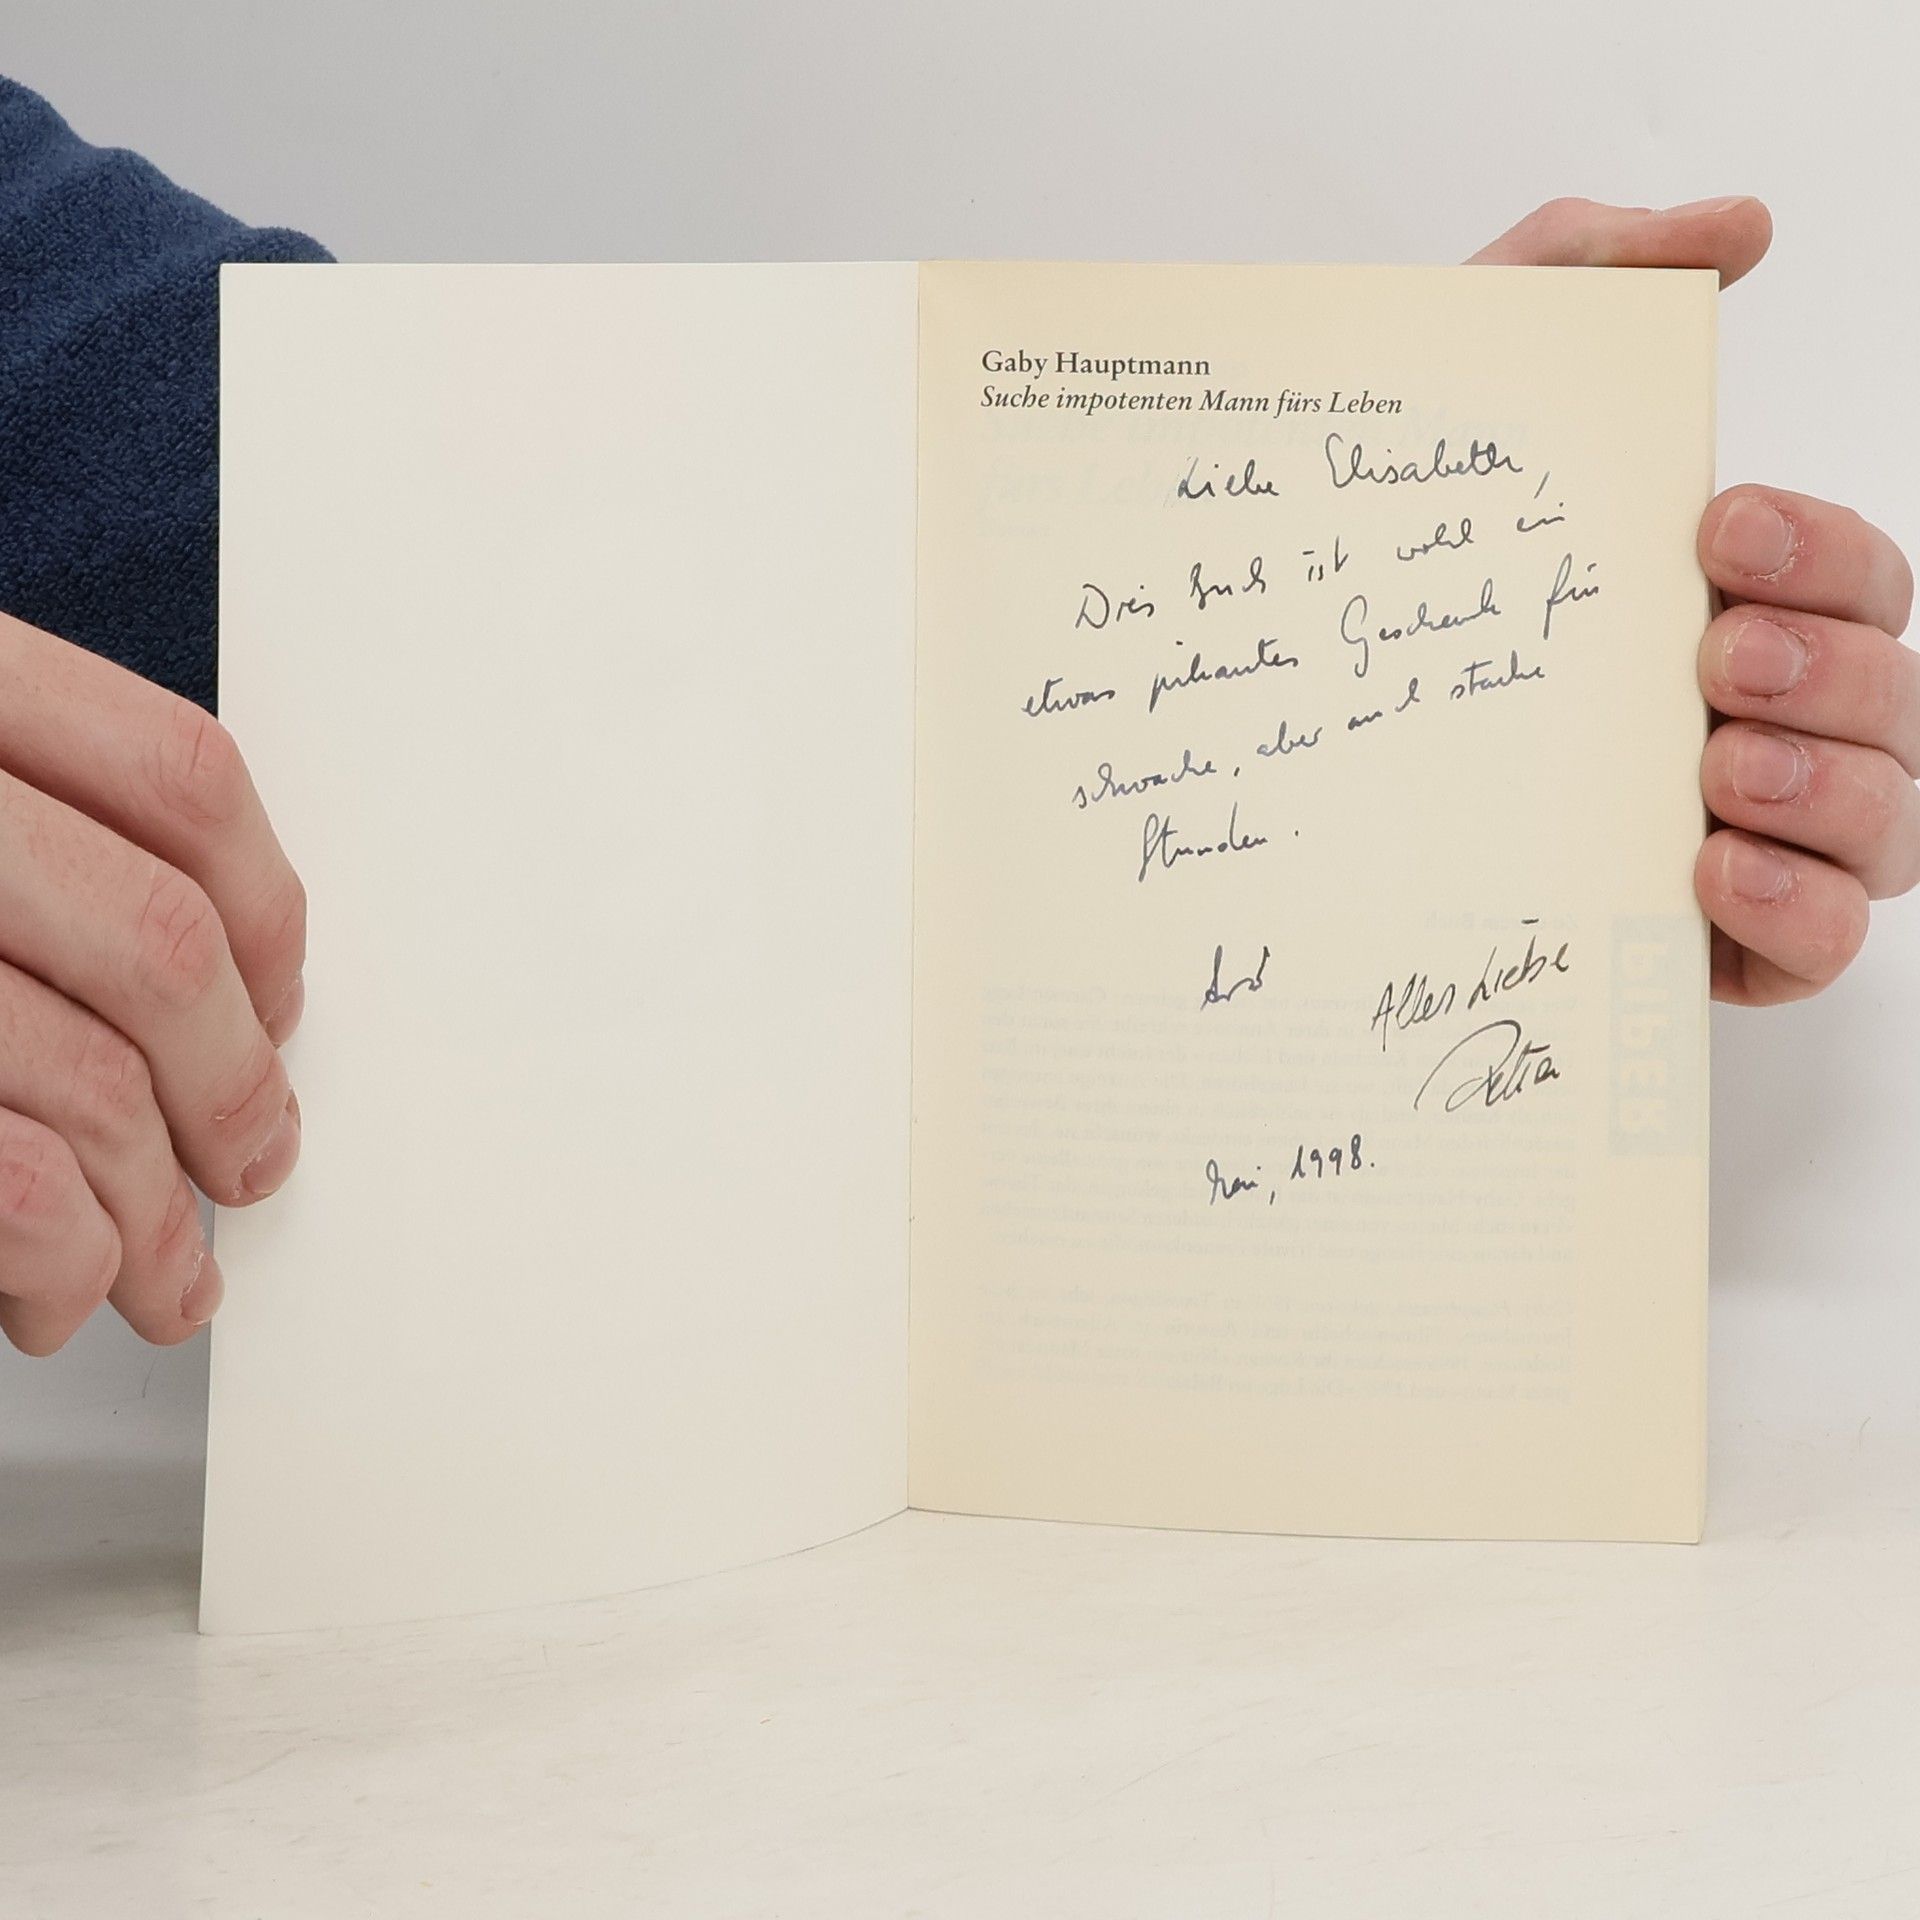 Gaby Hauptmann
Suche impotenten Mann fürs Leben
Liebe Elisabeth,
Dies Buch ist wohl ein
etwas pikantes Geschenk für
schwache, aber auch starke
Stunden.
Alles Liebe
Petra
Mai, 1998.